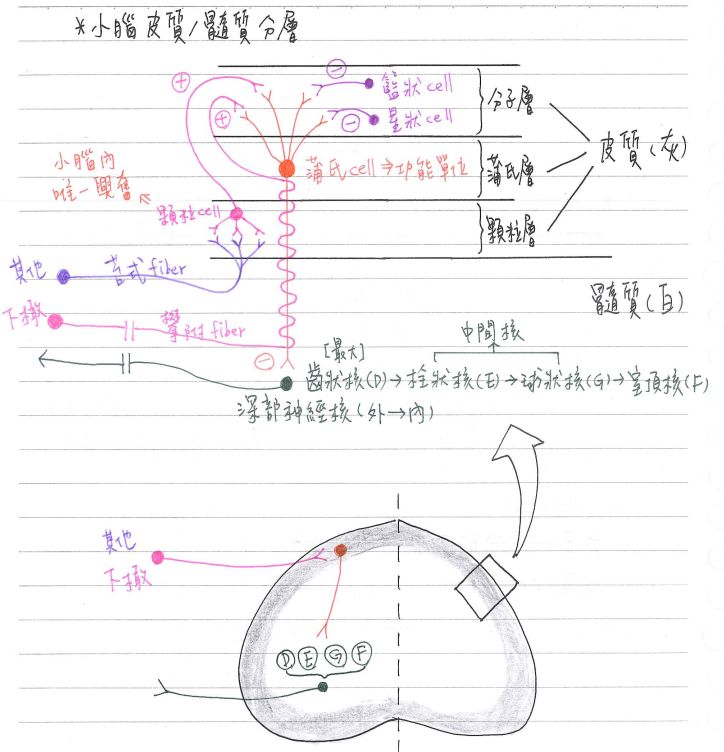 *小腦皮質/髓質分層
⊕ ⊖ 籃狀cell
⊕ ⊖ 星狀cell
分子層
小腦內
唯一興奮
蒲氏cell→功能單位
蒲氏層
皮質(灰)
顆粒cell
顆粒層
其他 苔式fiber
髓質(白)
下橄 攀附fiber
中間核
⊖ [最大]
齒狀核(D)→栓狀核(E)→球狀核(G)→室頂核(F)
深部神經核(外→內)
其他
下橄
D E G F